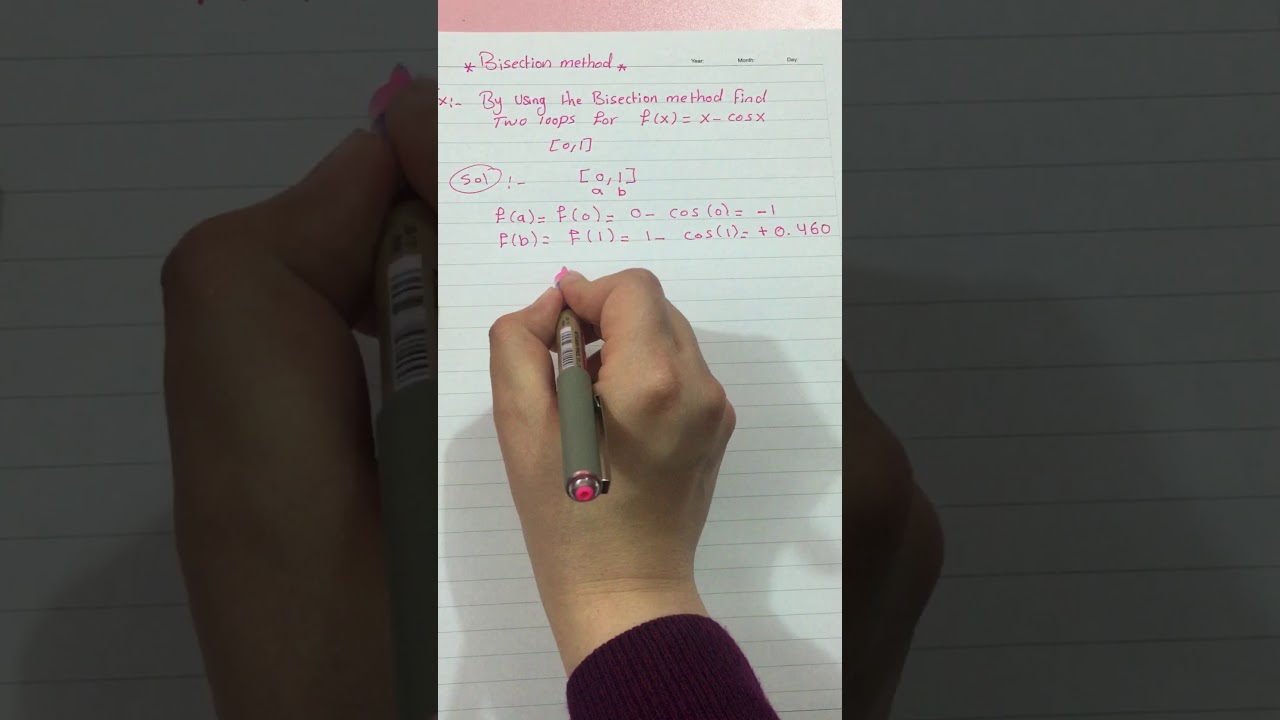 * Bisection method *
Year: Month: Day:
x:- By using the Bisection method find
Two loops for f(x) = x - cosx
[0,1]
Sol :- [0,1]
a b
f(a) = f(0) = 0 - cos(0) = -1
f(b) = f(1) = 1 - cos(1) = + 0.460